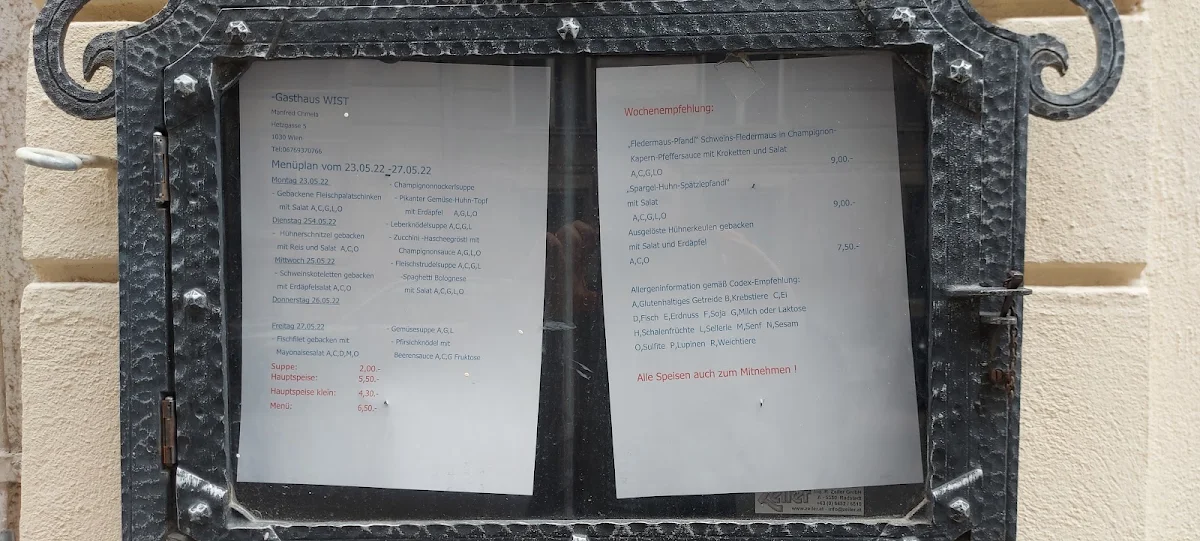 -Gasthaus WIST
Manfred Chmela
Hetzgasse 5
1030 Wien
Tel:06769370766
Menüplan vom 23.05.22 -27.05.22
Montag 23.05.22
- Gebackene Fleischpalatschinken
mit Salat A,C,G,L,O
Dienstag 254.05.22
- Hühnerschnitzel gebacken
mit Reis und Salat A,C,O
Mittwoch 25.05.22
- Schweinskoteletten gebacken
mit Erdäpfelsalat A,C,O
Donnerstag 26.05.22
Freitag 27.05.22
- Fischfilet gebacken mit
Mayonaisesalat A,C,D,M,O
- Champignonnockerlsuppe
- Pikanter Gemüse-Huhn-Topf
mit Erdäpfel A,G,L,O
- Leberknödelsuppe A,C,G,L
- Zucchini -Hascheegrösti mit
Champignonsauce A,G,L,O
- Fleischstrudelsuppe A,C,G,L
-Spaghetti Bolognese
mit Salat A,C,G,L,O
- Gemüsesuppe A,G,L
- Pfirsichknödel mit
Beerensauce A,C,G Fruktose
Suppe: 2,00.-
Hauptspeise: 5,50.-
Hauptspeise klein: 4,30.-
Menü: 6,50.-
Wochenempfehlung:
„Fledermaus-Pfandl" Schweins-Fledermaus in Champignon-
Kapern-Pfeffersauce mit Kroketten und Salat
9,00.-
A,C,G,L,O
„Spargel-Huhn-Spätzlepfandl"
mit Salat 9,00.-
A,C,G,L,O
Ausgelöste Hühnerkeulen gebacken
mit Salat und Erdäpfel 7,50.-
A,C,O
Allergeninformation gemäß Codex-Empfehlung:
A,Glutenhaltiges Getreide B,Krebstiere C,Ei
D,Fisch E,Erdnuss F,Soja G,Milch oder Laktose
H,Schalenfrüchte L,Sellerie M,Senf N,Sesam
O,Sulfite P,Lupinen R,Weichtiere
Alle Speisen auch zum Mitnehmen !
Zeller